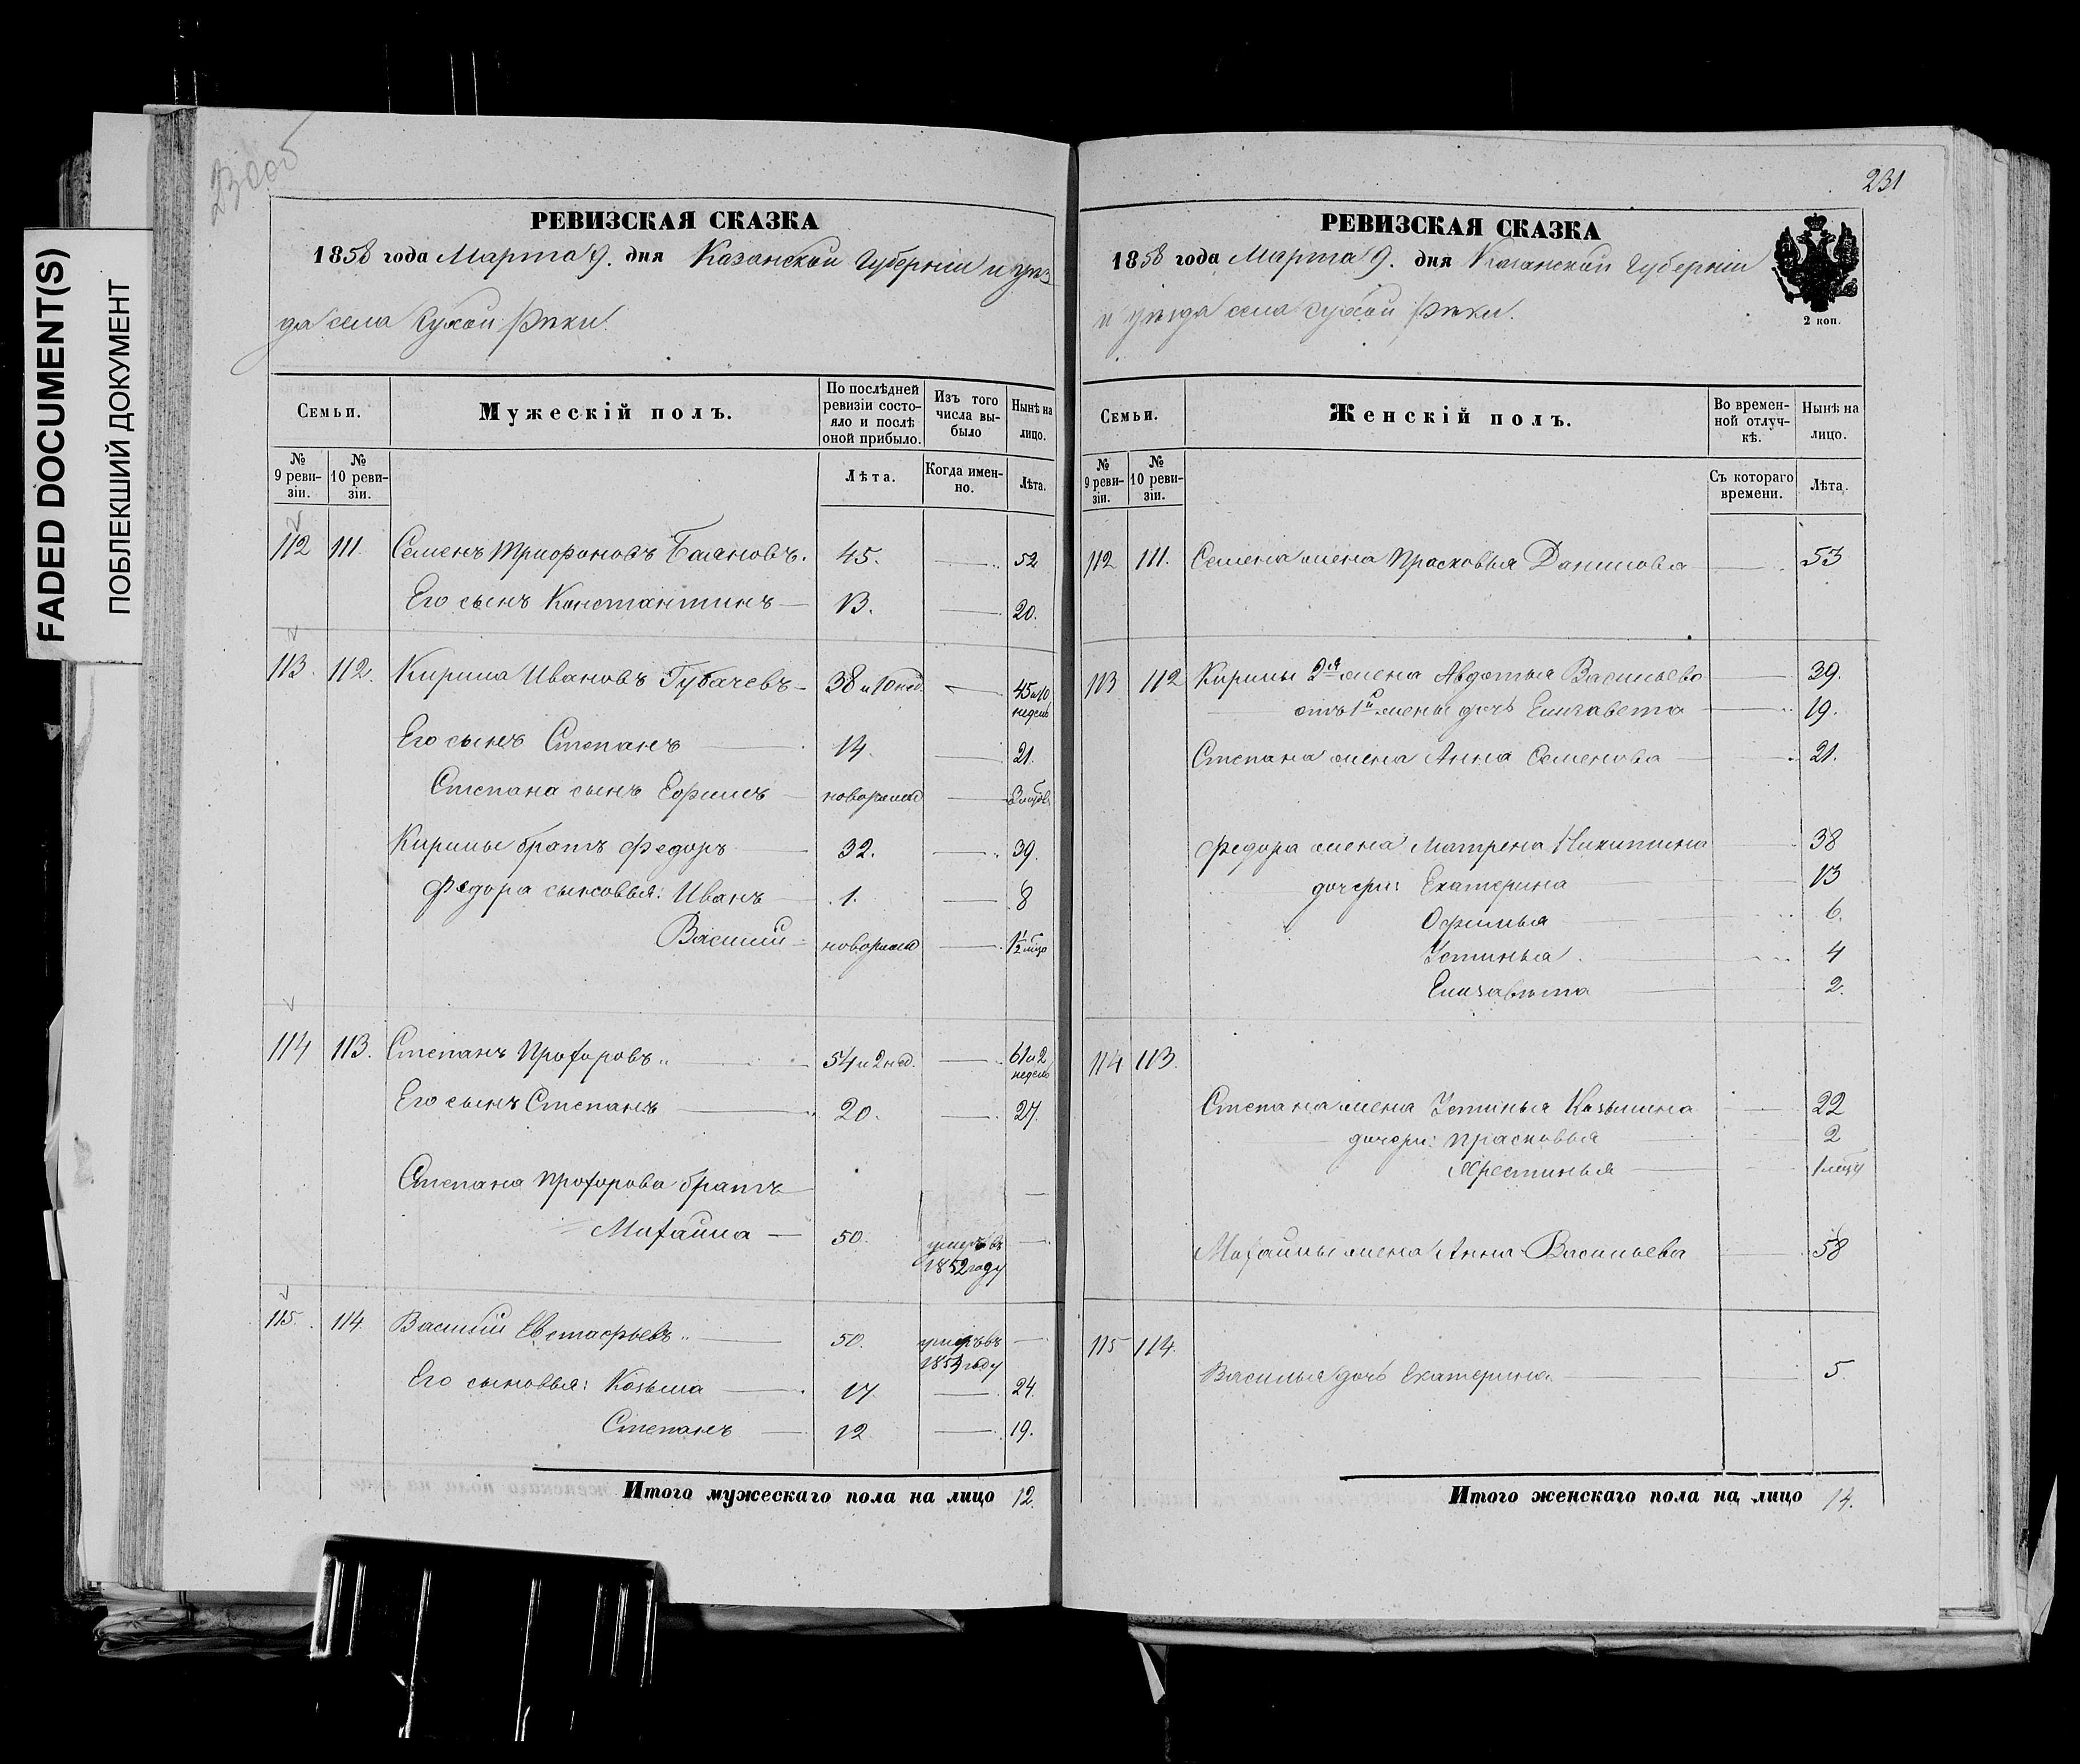 FADED DOCUMENT(S)
ПОБЛЕКШИЙ ДОКУМЕНТ
230об
РЕВИЗСКАЯ СКАЗКА
1858 года Марта 9. дня Казанской Губерніи и уѣз
да села Сухой Рѣки.
Семьи.
Мужескій полъ.
По послѣдней ревизіи состояло и послѣ оной прибыло.
Изъ того числа выбыло
Нынѣ на лицо.
№ 9 ревизіи.
№ 10 ревизіи.
Лѣта.
Когда именно.
Лѣта.
112 111. Семенъ Трифоновъ Баяновъ. 45. — 52
Его сынъ Константинъ — 13. — 20.
113. 112. Кирила Ивановъ Губачевъ — 38 и 10 нед. — 45 и 10 недель
Его сынъ Степанъ — 14. — 21.
Степана сынъ Ефимъ — новорожд —
Кирилы братъ Федоръ — 32. — 39.
Федора сыновья: Иванъ — 1. — 8
Василий — новорожд — 1½
114 113. Степанъ Прохоровъ.. — 54 и 2 нед. — 61 и 2 недель
Его сынъ Степанъ — 20. — 27.
Степана Прохорова братъ —
Михайла — 50. умеръ въ 1852 году —
115. 114. Василий Евстафьевъ.. — 50. умеръ въ 1854 году —
Его сыновья: Козьма — 17 — 24.
Степанъ — 12 — 19.
Итого мужескаго пола на лицо 12.
231
РЕВИЗСКАЯ СКАЗКА
1858 года Марта 9. дня Казанской Губерніи
и уѣзда села Сухой Рѣки.
2 коп.
Семьи.
Женскій полъ.
Во временной отлучкѣ.
Нынѣ на лицо.
№ 9 ревизіи.
№ 10 ревизіи.
Съ котораго времени.
Лѣта.
112 111. Семена жена Прасковья Данилова — 53
113 112 Кирилы 2я жена Авдотья Васильева — 39.
отъ 1й жены дочь Елизавета — 19.
Степана жена Анна Семенова — 21.
Федора жена Матрена Никитина 38
дочери: Екатерина — 13
Офимья — 6.
Устинья — 4
Елизавѣта — 2.
114 113.
Степана жена Устинья Козьмина — 22
дочери: Прасковья — 2
Хрестинья —
Михайлы жена Анна Васильева — 58
115 114.
Василья дочь Екатерина — 5.
Итого женскаго пола на лицо 14.